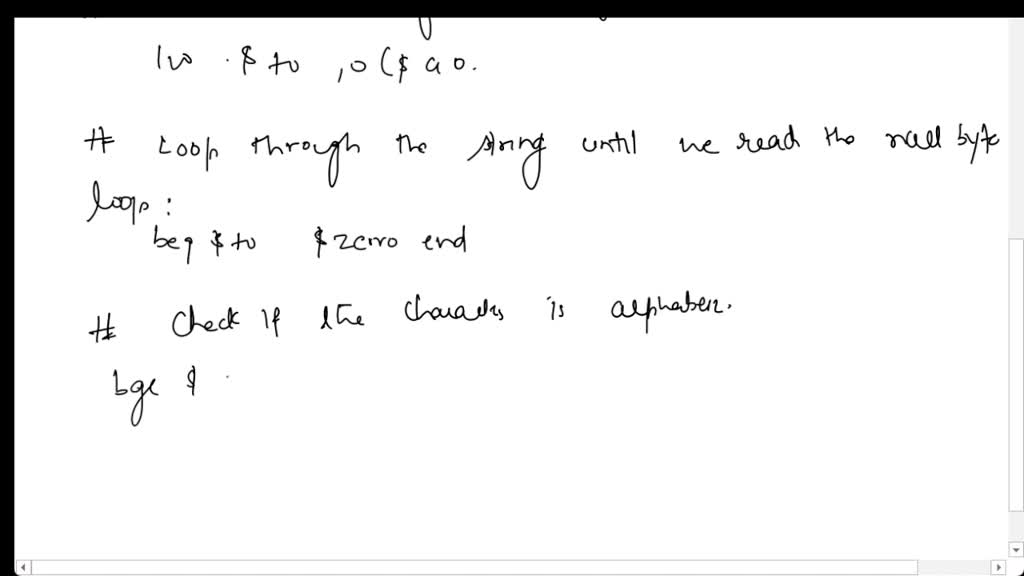 lw $t0 ,0($a0.
# Loop through the string until we read the null byte
loop:
beq $t0 $zero end
# Check if the character is alphabetic.
bge $